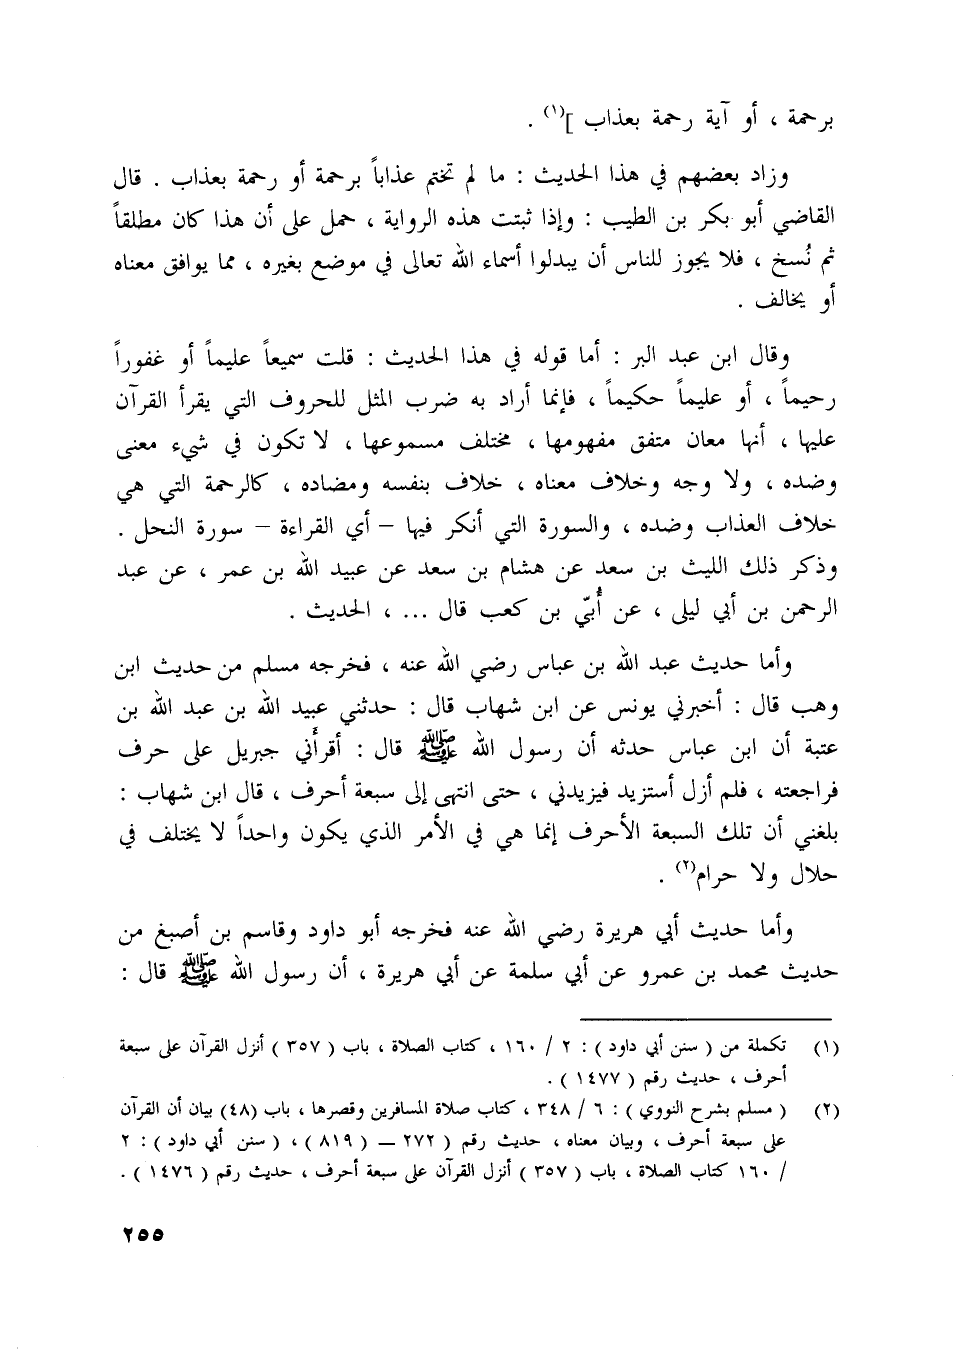 برحمة ، أو آية رحمة بعذاب ](١) .
وزاد بعضهم في هذا الحديث : ما لم تختم عذاباً برحمة أو رحمة بعذاب . قال
القاضي أبو بكر بن الطيب : وإذا ثبتت هذه الرواية ، حمل على أن هذا كان مطلقاً
ثم نُسخ ، فلا يجوز للناس أن يبدلوا أسماء الله تعالى في موضع بغيره ، مما يوافق معناه
أو يخالف .
وقال ابن عبد البر : أما قوله في هذا الحديث : قلت سميعاً عليماً أو غفوراً
رحيماً ، أو عليماً حكيماً ، فإنما أراد به ضرب المثل للحروف التي يقرأ القرآن
عليها ، أنها معان متفق مفهومها ، مختلف مسموعها ، لا تكون في شيء معنى
وضده ، ولا وجه وخلاف معناه ، خلاف بنفسه ومضاده ، كالرحمة التي هي
خلاف العذاب وضده ، والسورة التي أنكر فيها – أي القراءة – سورة النحل .
وذكر ذلك الليث بن سعد عن هشام بن سعد عن عبيد الله بن عمر ، عن عبد
الرحمن بن أبي ليلى ، عن أُبيّ بن كعب قال ... ، الحديث .
وأما حديث عبد الله بن عباس رضي الله عنه ، فخرجه مسلم من حديث ابن
وهب قال : أخبرني يونس عن ابن شهاب قال : حدثني عبيد الله بن عبد الله بن
عتبة أن ابن عباس حدثه أن رسول الله ﷺ قال : أقرأَني جبريل على حرف
فراجعته ، فلم أزل أستزيد فيزيدني ، حتى انتهى إلى سبعة أحرف ، قال ابن شهاب :
بلغني أن تلك السبعة الأحرف إنما هي في الأمر الذي يكون واحداً لا يختلف في
حلال ولا حرام(٢) .
وأما حديث أبي هريرة رضي الله عنه فخرجه أبو داود وقاسم بن أصبغ من
حديث محمد بن عمرو عن أبي سلمة عن أبي هريرة ، أن رسول الله ﷺ قال :
(١) تكملة من ( سنن أبي داود ) : ٢ / ١٦٠ ، كتاب الصلاة ، باب ( ٣٥٧ ) أنزل القرآن على سبعة
أحرف ، حديث رقم ( ١٤٧٧ ) .
(٢) ( مسلم بشرح النووي ) : ٦ / ٣٤٨ ، كتاب صلاة المسافرين وقصرها ، باب (٤٨) بيان أن القرآن
على سبعة أحرف ، وبيان معناه ، حديث رقم ( ٢٧٢ – ( ٨١٩ ) ، ( سنن أبي داود ) : ٢
/ ١٦٠ كتاب الصلاة ، باب ( ٣٥٧ ) أنزل القرآن على سبعة أحرف ، حديث رقم ( ١٤٧٦ ) .
٢٥٥